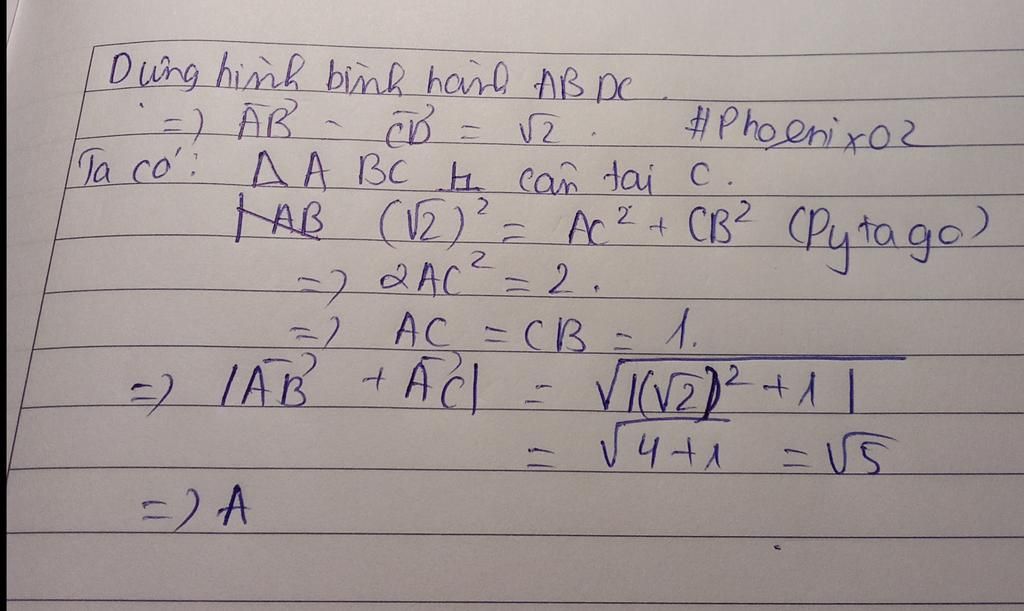 Dựng hình bình hành ABDC.
=> \overrightarrow{AB} = \overrightarrow{CD} = √2. #Phoenix02
Ta có: Δ ABC ⊥ cân tại C.
(√2)² = AC² + CB² (Pytago)
=> 2AC² = 2.
=> AC = CB = 1.
=> |\overrightarrow{AB} + \overrightarrow{AC}| = √|(√2)² + 1|
= √4+1 = √5
=> A